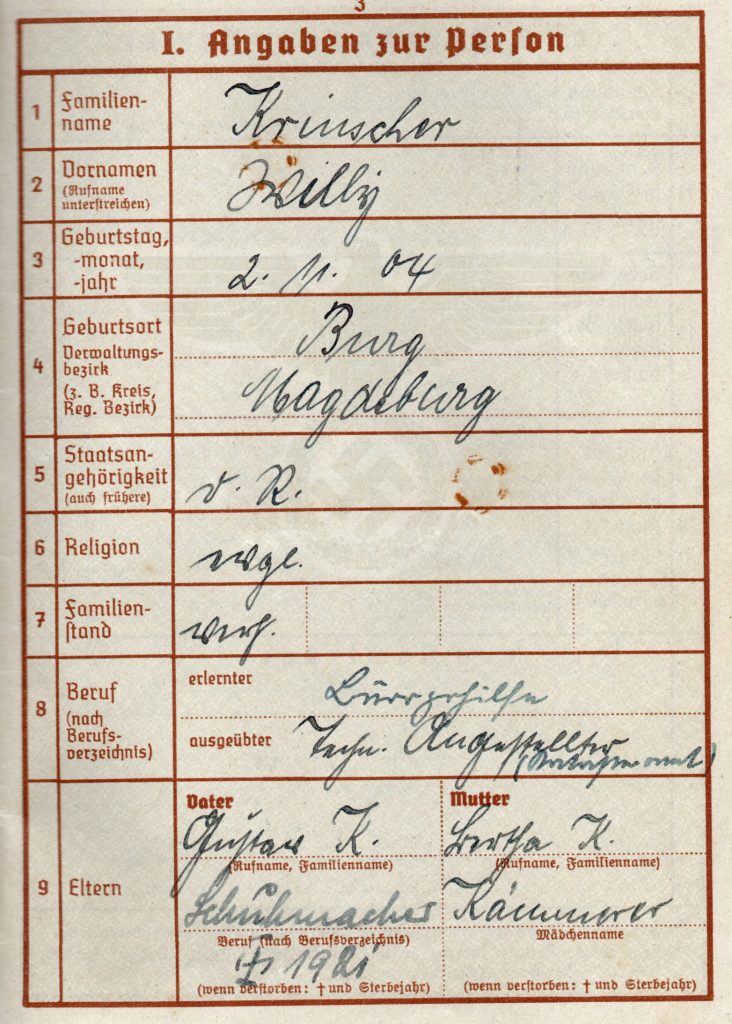 3
I. Angaben zur Person
1 Familien-
name
Krinscher
2 Vornamen
(Rufname
unterstreichen)
Willy
3 Geburtstag,
-monat,
-jahr
2. 11. 04
4 Geburtsort
Verwaltungs-
bezirk
(z. B. Kreis,
Reg. Bezirk)
Burg
Magdeburg
5 Staatsan-
gehörigkeit
(auch frühere)
d. R.
6 Religion
evgl.
7 Familien-
stand
verh.
8 Beruf
(nach
Berufs-
verzeichnis)
erlernter
Bürogehilfe
ausgeübter Techn. Angestellter
(Katasteramt)
9 Eltern
Vater
Gustav K.
(Rufname, Familienname)
Schuhmacher
Beruf (nach Berufsverzeichnis)
† 1921
(wenn verstorben: † und Sterbejahr)
Mutter
Bertha K.
(Rufname, Familienname)
Kämmerer
Mädchenname
(wenn verstorben: † und Sterbejahr)